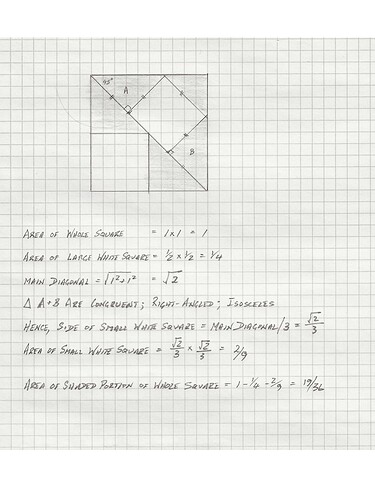 45°
A
B
AREA OF WHOLE SQUARE = 1 x 1 = 1
AREA OF LARGE WHITE SQUARE = 1/2 x 1/2 = 1/4
MAIN DIAGONAL = √1²+1² = √2
Δ A + B ARE CONGRUENT; RIGHT-ANGLED; ISOSCELES
HENCE, SIDE OF SMALL WHITE SQUARE = MAIN DIAGONAL/3 = √2/3
AREA OF SMALL WHITE SQUARE = √2/3 x √2/3 = 2/9
AREA OF SHADED PORTION OF WHOLE SQUARE = 1 - 1/4 - 2/9 = 19/36